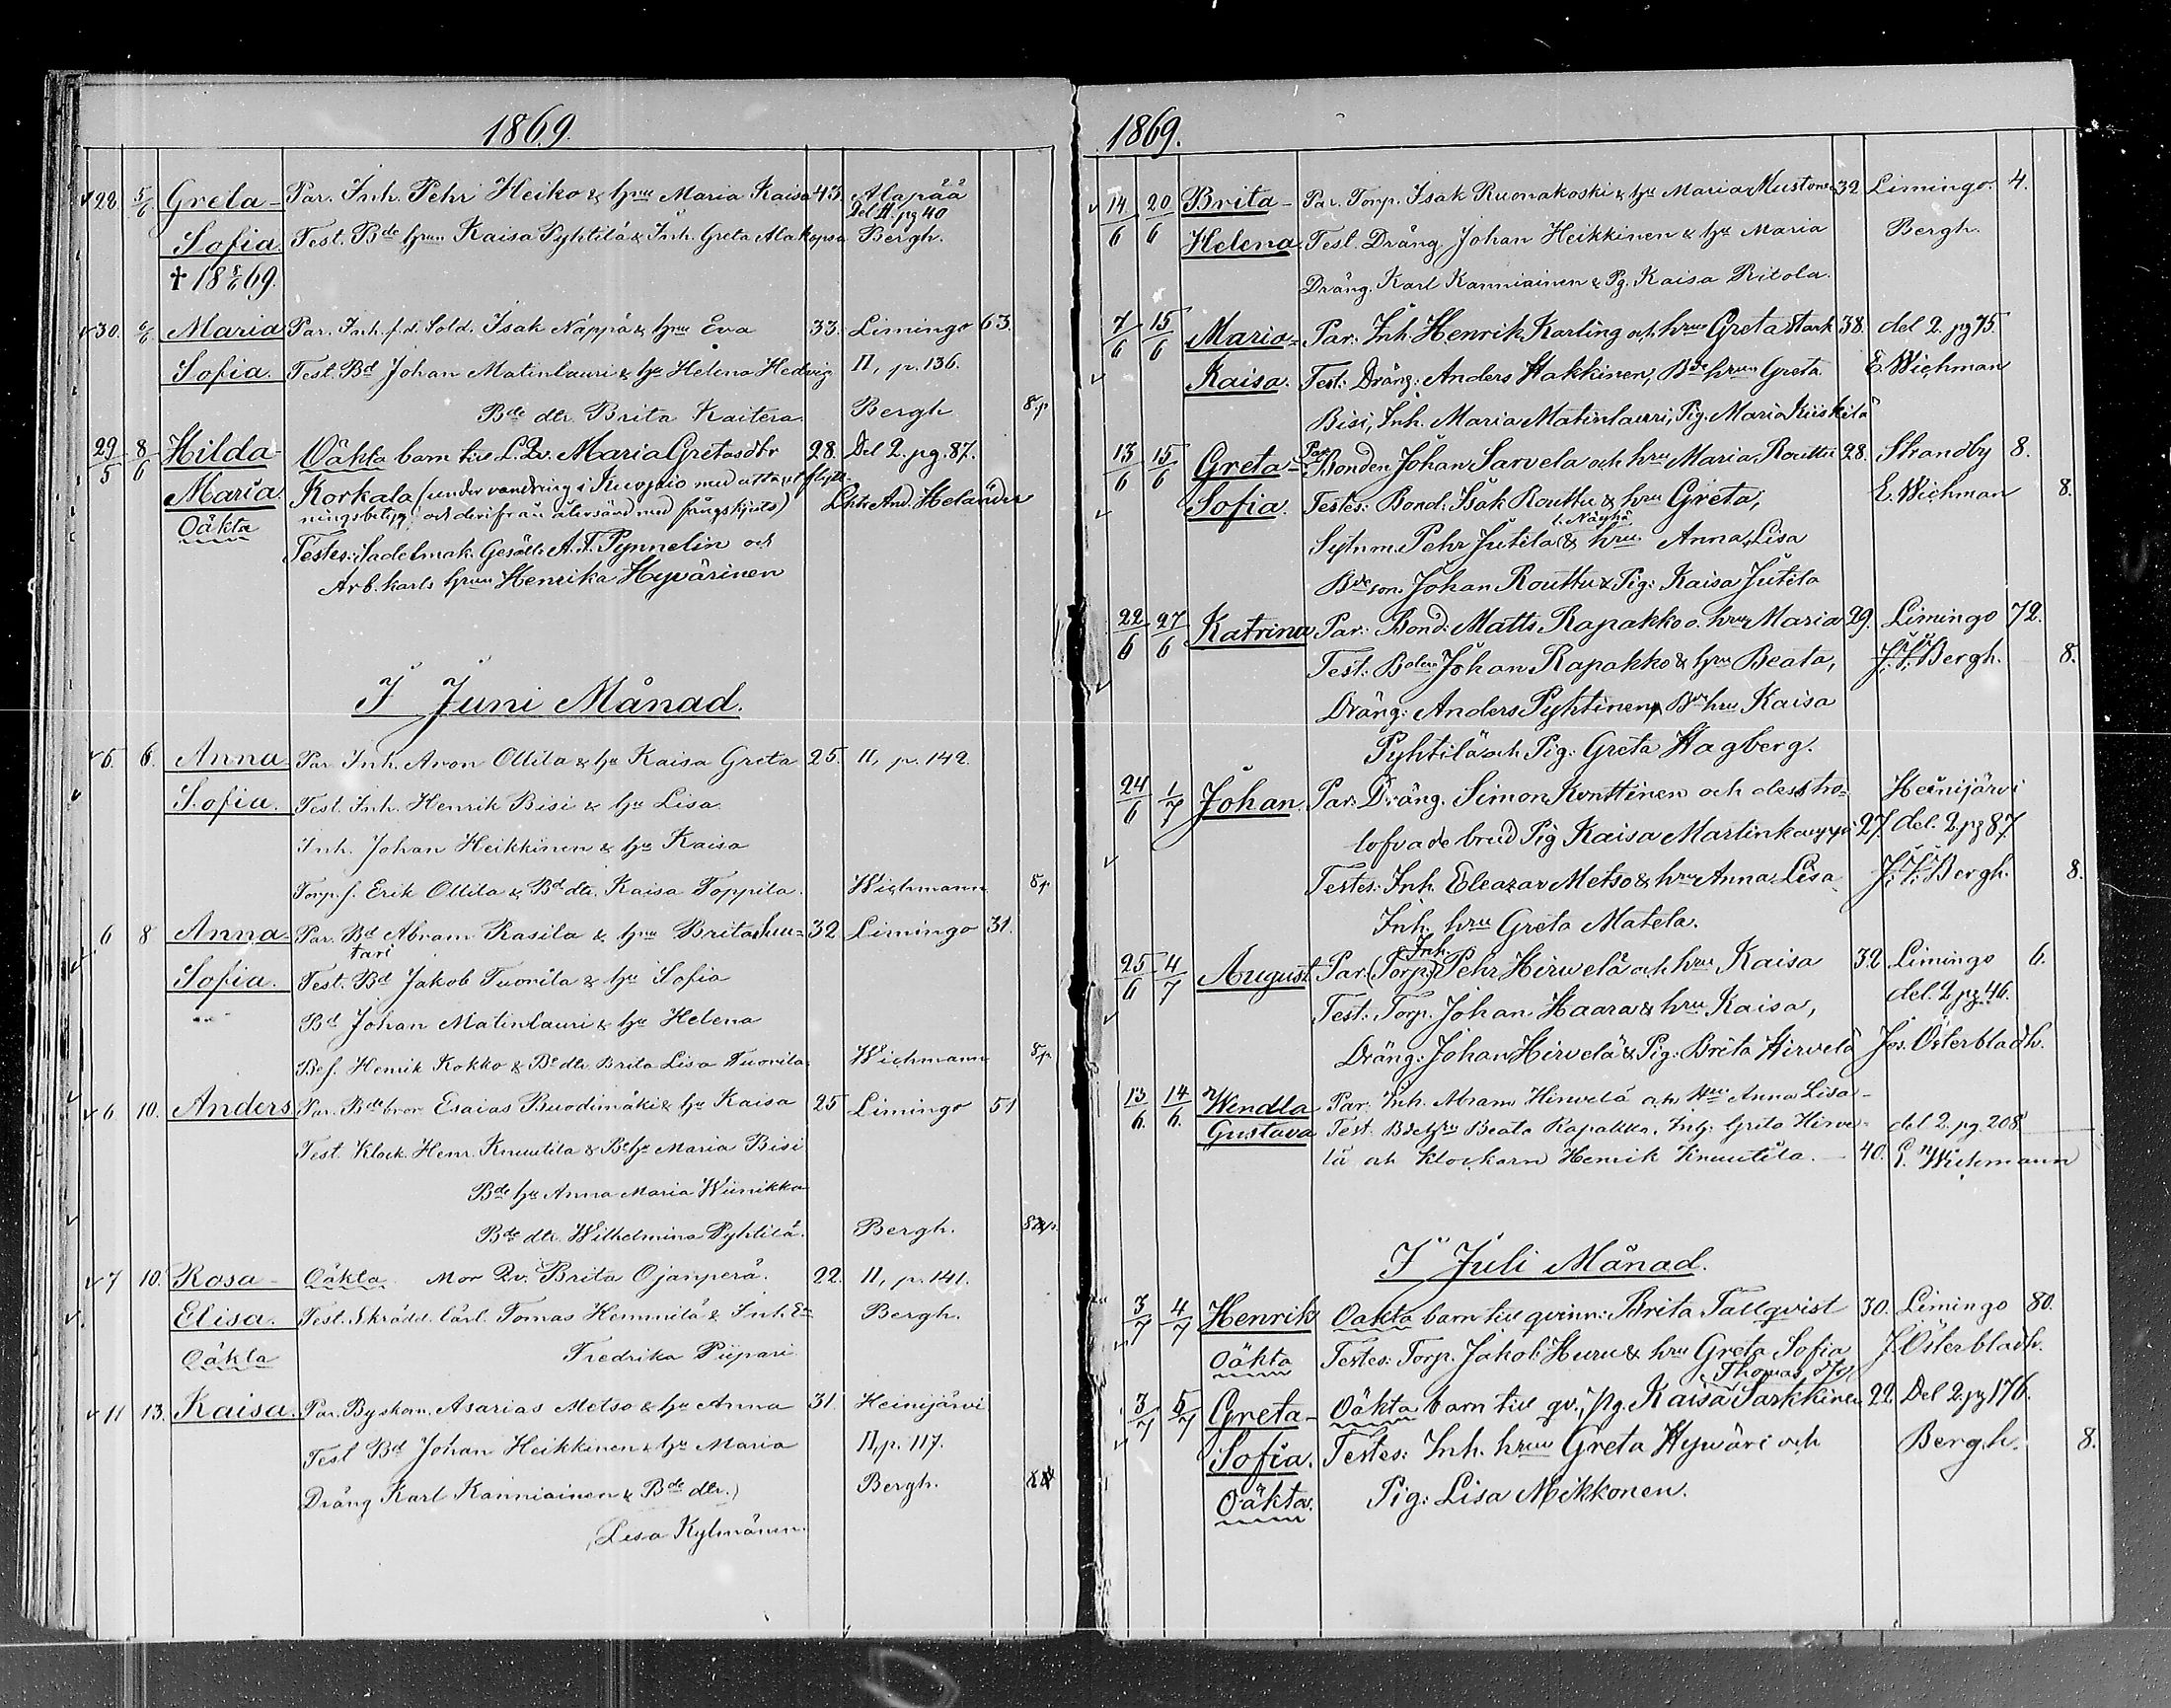 1869.
22 5/6 Greta- Par. Inh. Pehr Heiko & hru Maria Kaisa 43. Alapää
Del II pg 40
Sofia Test. Bde hru Kaisa Pyhtilä & Inh. Greta Alakopsa Bergh.
† 18 8/6 69.
30. 6/6 Maria Par. Inh. f.d. Sold. Isak Näppä & hru Eva 33. Limingo 63.
Sofia. Test. Bd Johan Matinlauri & hu Helena Hedvig II, p. 136.
Bde dtr. Brita Kaitera Bergh 8p
29/5 8/6 Hilda- Oäkta barn till L. Qv. Maria Gretasdtr 28. Del 2. pg. 87.
Maria Korkala (under vandring i Kuopio med utflytt-
Oäkta ningsbetyg och derifrån återsänd med fångskjuts) And. Helander
Testes: Sadelmak. Gesäll A. F. Pynnelin och
Arb. karls hrun Henrika Hyvärinen
I Juni Månad.
5. 6. Anna Par. Inh. Aron Ollila & hu Kaisa Greta 25. II, p. 142.
Sofia. Test. Inh. Henrik Bisi & hu Lisa
Inh. Johan Heikkinen & hu Kaisa
Torp. s. Erik Ollila & Bd dtr. Kaisa Toppila. Wichmann 8p
6 8 Anna- Par. Bd Abram Rasila & hru Brita Huu- 32 Limingo 31.
tari
Sofia. Test. Bd Jakob Tuorila & hu Sofia
Bd Johan Matinlauri & hu Helena
Bes. Henrik Kokko & Bd dtr. Brita Lisa Tuorila. Wichmann 8p
6 10. Anders Par. Bde bror Esaias Buodimäki & hu Kaisa 25 Limingo 51
Test. Klock. Henr. Knuutila & Bd hu Maria Bisi
Bde hu Anna Maria Wiinikka
Bde dtr. Wilhelmina Pyhtilä. Bergh.
7 10. Rosa- Oäkta. Mor Qv. Brita Ojanperä. 22. II, p. 141.
Elisa. Test. Skrädd. lärl. Tomas Hemmilä & Inh. Bergh.
Oäkta Fredrika Piipari
11 13. Kaisa. Par. Byskom. Asarias Metso & hu Anna 31. Heinijärvi
Test Bd Johan Heikkinen & hu Maria II, p. 117.
Dräng Karl Kanniainen & Bde dtr. Bergh.
Lisa Kylmänen.
1869.
14/6 20/6 Brita- Par. Torp. Isak Ruonakoski & hu Maria Mustonen 32 Limingo. 4.
Helena Test. Dräng. Johan Heikkinen & hu Maria Bergh.
Dräng. Karl Kanniainen & Pg. Kaisa Ritola.
7/6 15/6 Maria- Par: Inh. Henrik Karling och hru Greta Stark 38. del 2. pg 75.
Kaisa. Test: Dräng: Anders Hakkinen, Bde hrun Greta E. Wichman
Bisi, Inh. Maria Matinlauri, Pig. Maria Kiiskilä
13/6 15/6 Greta- Par: Bonden Johan Sarvela och hru Maria Routtu 28. Strandby 8.
Sofia. Testes: Bond: Isak Routtu & hru Greta, E. Wichman 8.
Sytnm. Pehr Jutila & hru Anna Lisa
Bde son. Johan Routtu & Pig: Kaisa Jutila
22/6 27/6 Katrina Par: Bond: Matts Rapakko o. hru Maria 29. Limingo 72.
Test: Bden Johan Rapakko & hru Beata, J. V. Bergh. 8.
Dräng: Anders Pyhtinen, Bde hru Kaisa
Pyhtilä och Pig: Greta Hagberg.
24/6 1/7 Johan. Par: Dräng. Simon Konttinen och dess tro- Heinijärvi
lofvade brud Pig Kaisa Martinkauppi 27. del. 2. pg 87
Testes: Inh. Eleazar Metso & hru Anna Lisa J. V. Bergh. 8.
Inh. hru Greta Matela.
Inh.
25/6 4/7 August Par: (Torp.) Pehr Hirvelä och hru Kaisa 32 Limingo 6.
Test: Torp. Johan Haara & hru Kaisa, del. 2 pg. 46.
Dräng: Johan Hirvelä & Pig: Brita Hirvelä Jos. Österbladh.
13/6. 14/6. Wendla Par. Inh. Abram Hirvelä och Hru Anna Lisa-
Gustava Test. Bde hru Beata Rapakko, Inh: Greta Hirve- del 2. pg. 208
lä och Klockarn Henrik Knuutila. 40. E. Wichmann
I Juli Månad.
3/7 4/7 Henrik Oäkta barn till qvinn: Brita Tallqvist 30. Limingo 80.
Oäkta Testes: Torp. Jakob Huru & hru Greta Sofia J. Österbladh.
Thomas dtr
3/7 5/7 Greta- Oäkta barn till qv., pg. Kaisa Sarkkinen 22. Del 2. pg 176.
Sofia. Testes: Inh. hrun Greta Hywäri och Bergh. 8.
Oäkta. Pig: Lisa Mikkonen.